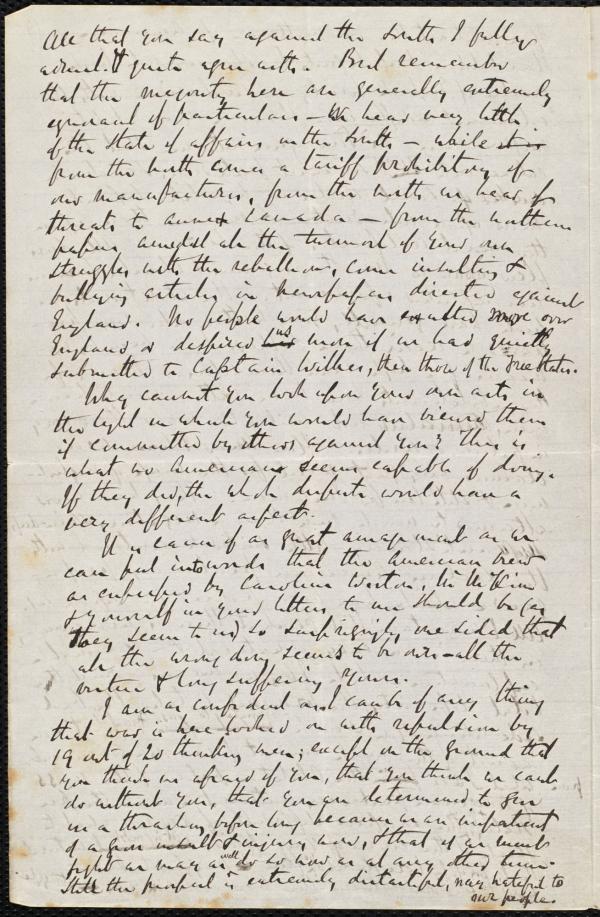 All that you say against the South I fully
admit & quite agree with. But remember
that the majority here are generally extremely
ignorant of particulars – We hear very little
of the State of affairs in the South – while it is
from the North comes a tariff prohibitory of
our manufactures, from the North we hear of
threats to annex Canada – from the northern
papers amidst all the turmoil of your own
struggles with the rebellion, come insulting &
bullying articles in Newspapers directed against
England. No people would have exulted more over
England or despised us more if we had quietly
submitted to Captain Wilkes, than those of the Free States.
Why cannot you look upon your own acts in
the light in which you would have viewed them
if committed by others against you? This is
what no American seems capable of doing.
If they did, the whole dispute would have a
very different aspect.
It is cause of as great amazement as we
can put into words that the American view
as expressed by Caroline Weston, Mr McKim
& yourself in your letters to me should be (as
they seem to us) so surprisingly one sided that
all the wrong doing seems to be ours – all the
virtue & long suffering yours.
I am as confident as I can be of any thing
that war is here looked on with repulsion by
19 out of 20 thinking men; except on the ground that
you think us afraid of you, that you think we can't
do without you, that you are determined to give
us a thrashing before long because we are impatient
of a gross insult & injury now, & that if we must
fight we may as well do so now as at any other time.
Still the prospect is extremely distasteful, nay hateful to
our people.